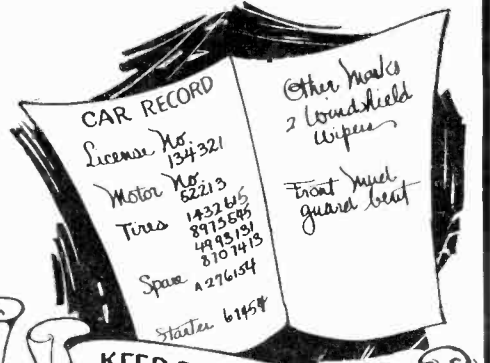 CAR RECORD
License No.
134321
Motor No.
52213
Tires 1432615
8973545
4993131
8707413
Spare A276154
Starter 61454
Other Marks
2 Windshield
Wipers
Front Mud
guard bent
KEEP